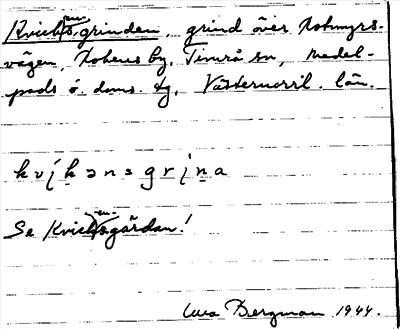 Kvickensgrinden, grind över Rotmyrs-
vägen, Rotens by, Timrå sn, Medel-
pads ö. doms. tg, Västernorrl. län.
k v í k ə n s g r í n a
Se Kvickensgårdan!
Bergman 1944.